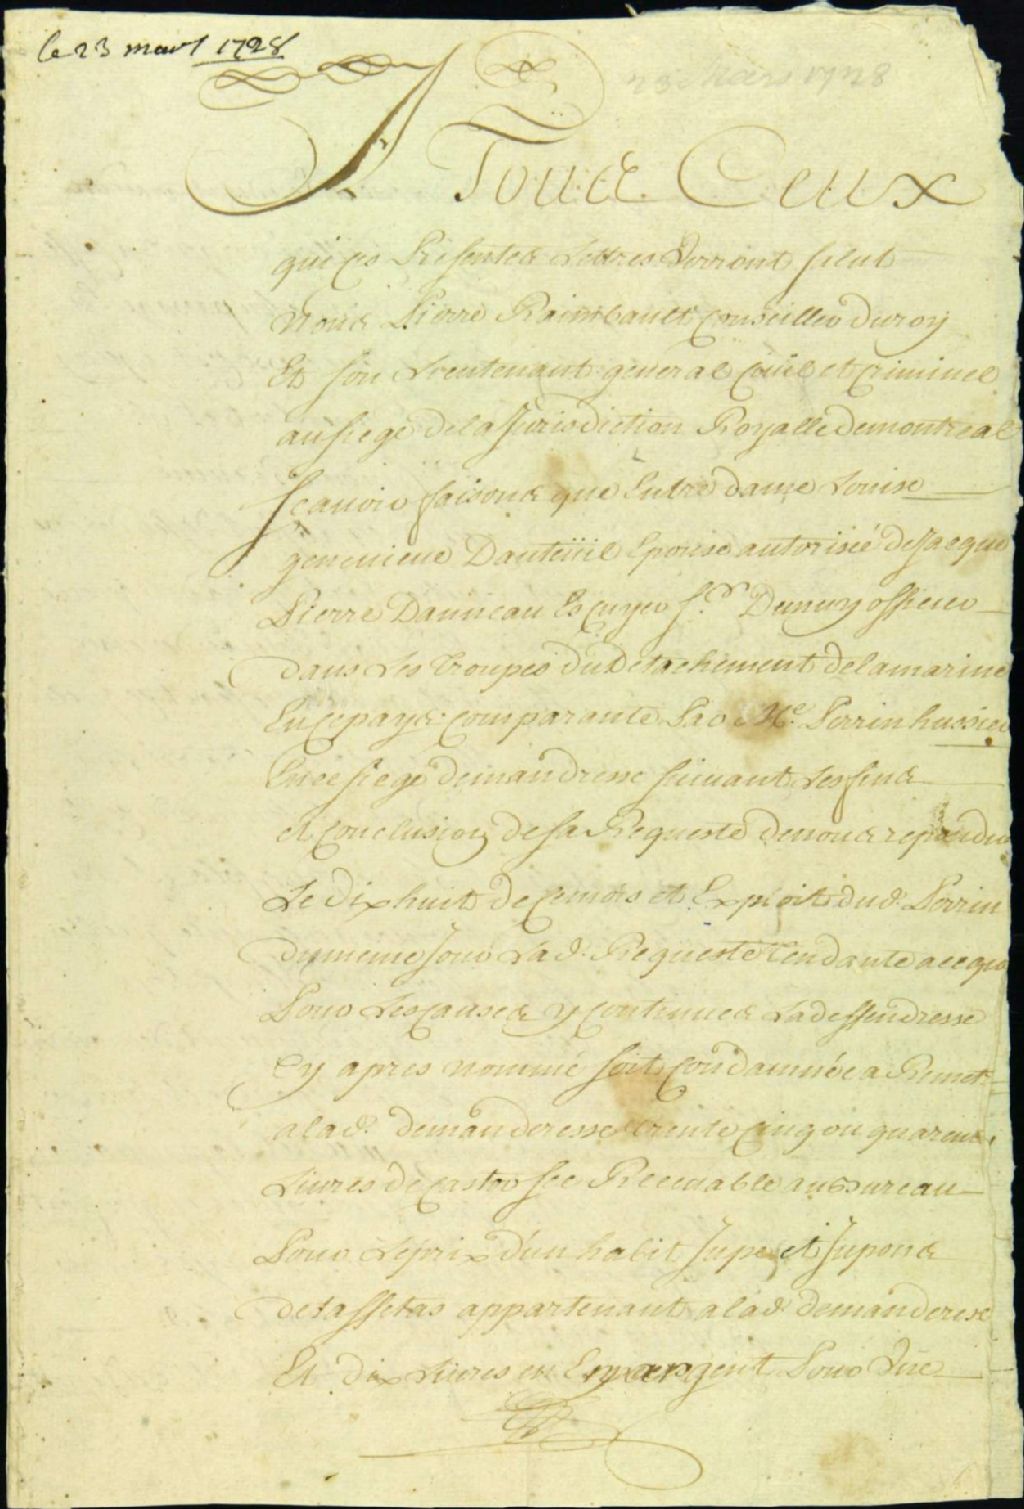 le 23 mars 1728
23 Mars 1728
A Tous Ceux
qui ces Presentes Lettres Verront salut
Nous Pierre Raimbault Conseiller du roy
Et son Lieutenant general Civil et Criminel
au siege de la Jurisdiction Royalle de montreal
scavoir faisons que Entre dame Louise
genevieve Dauteüil Epouse autorisée de Jacque
Pierre Danneau Escuyer s.r Demuy officier
dans les troupes du Detachement de la marine
En ce pays comparante Par M.e Perrin hussier
En ce siege demandresse suivant les fins
et Conclusion de sa Requeste de nous repondue
Le dix huit de ce mois et Exploit dud. Perrin
du meme Jour Lad. Requeste tendante a ce que
Pour les causes y contenues La deffendresse
Cy apres nommé soit Condamnée a Remet
a lad. demanderesse trente Cinq ou quarente
Livres de Castor sec Recevable au Bureau
Pour Le prix d'un habit Jupe et Jupons
de taffetas appartenant a lad. demanderesse
Et dix Livres en argent Pour Une